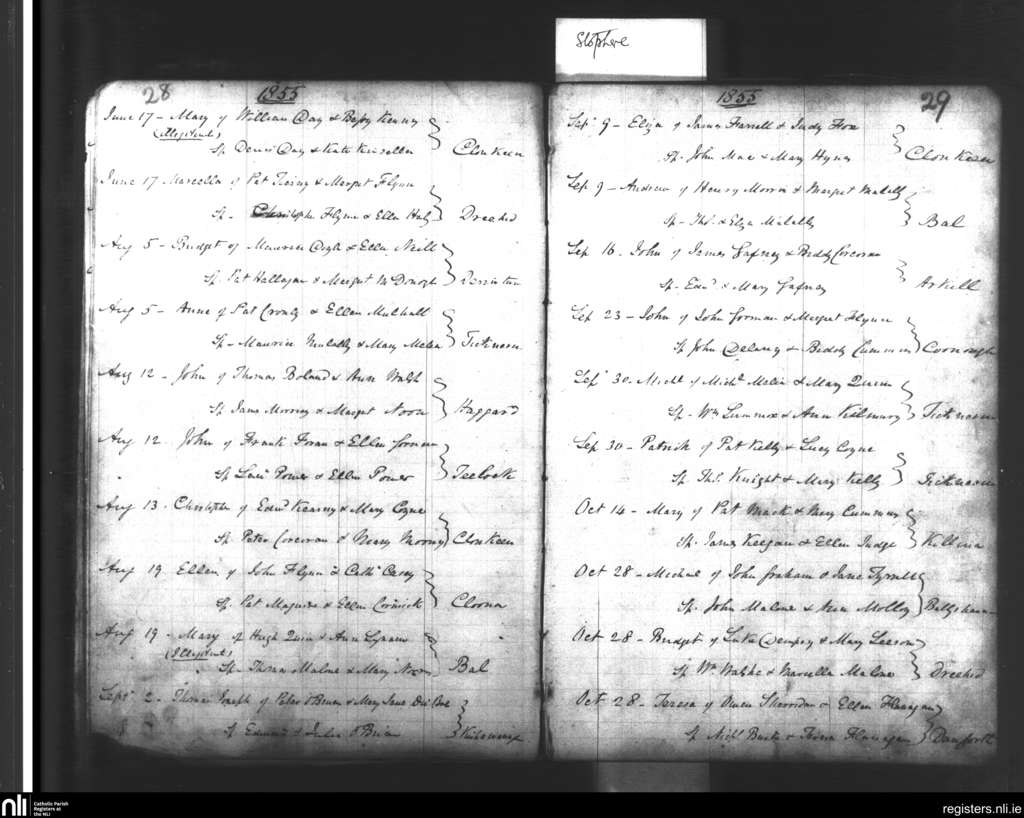 28
1855
June 17 - Mary of William Day & Bessy Kenny
(Illegitimate)
Sp Denis Day & Kate Kinsellea
Clonkeen
June 17 Marcella of Pat & Margret Flynn
Sp - Christophr Flynn & Ellen
Dreehid
Aug 5 - Bridget of Maurice Doyle & Ellen Neill
Sp. Pat Halligan & Margret McDonogh
Aug 5 - Anne of Pat Cronly & Ellen Mulhall
Sp - Maurice Mulally & Mary Malea
Ticknevin
Aug 12 - John of Thomas Boland & Ann Walsh
Sp James Morrissy & Margret Noon
Haggard
Aug 12 John of Frank Foran & Ellen Gorman
Sp Laur Power & Ellen Power
Teelock
Aug 13. Christopher of Edwd Kearney & Mary Coyne
Sp. Peter Corcoran & Mooney
Clonkeen
Aug 19 Ellen of John Flynn & Cath Casey
Sp. Pat Maguire & Ellen Cormick
Cloona
Aug 19 - Mary of Hugh Quin & Ann Lynam
(Illegitimate)
Sp - Thomas Malone & Mary Noon
Bal
Sept 2 - Thomas Joseph of Peter O'Brien & Mary Jane
Sp Edmund & Julia O'Brien
29
1855
Sep 9 - Eliza of James Farrell & Judy Fox
Sp. John Mac & Mary Hynes
Clonkeen
Sep 9 - Andrew of Henry Morrin & Margret Mulally
Sp - Ths. & Eliza Mulally
Bal
Sep 16. John of James Gafney & Biddy Corcoran
Sp - Edwd & Mary Gafney
Arkill
Sep 23 - John of John Gorman & Margret Flynn
Sp John Delaney & Biddy Cummins
Coonough
Sep 30. Michl of Michl Malin & Mary Quinn
Sp - Wm Lummox & Ann Kilmurry
Ticknevin
Sep 30 - Patrick of Pat Kelly & Lucy Coyne
Sp. Ths. Knight & Mary Kelly
Ticknevin
Oct 14 - Mary of Pat Mack & Mary Cummins
Sp. James Keegan & Ellen Judge
Killina
Oct 28 - Michael of John Graham & Jane Tyrrell
Sp. John Malone & Ann Molloy
Oct 28 - Bridget of Luke Dempsey & Mary Leeson
Sp Wm Walshe & Marcella Malone
Dreehid
Oct 28 - Teresa of Owen Sherridan & Ellen Flanagan
Sp Nichl Burke & Teresa Flanagan
Danforth
nli
Catholic Parish
Registers at
the NLI
registers.nli.ie